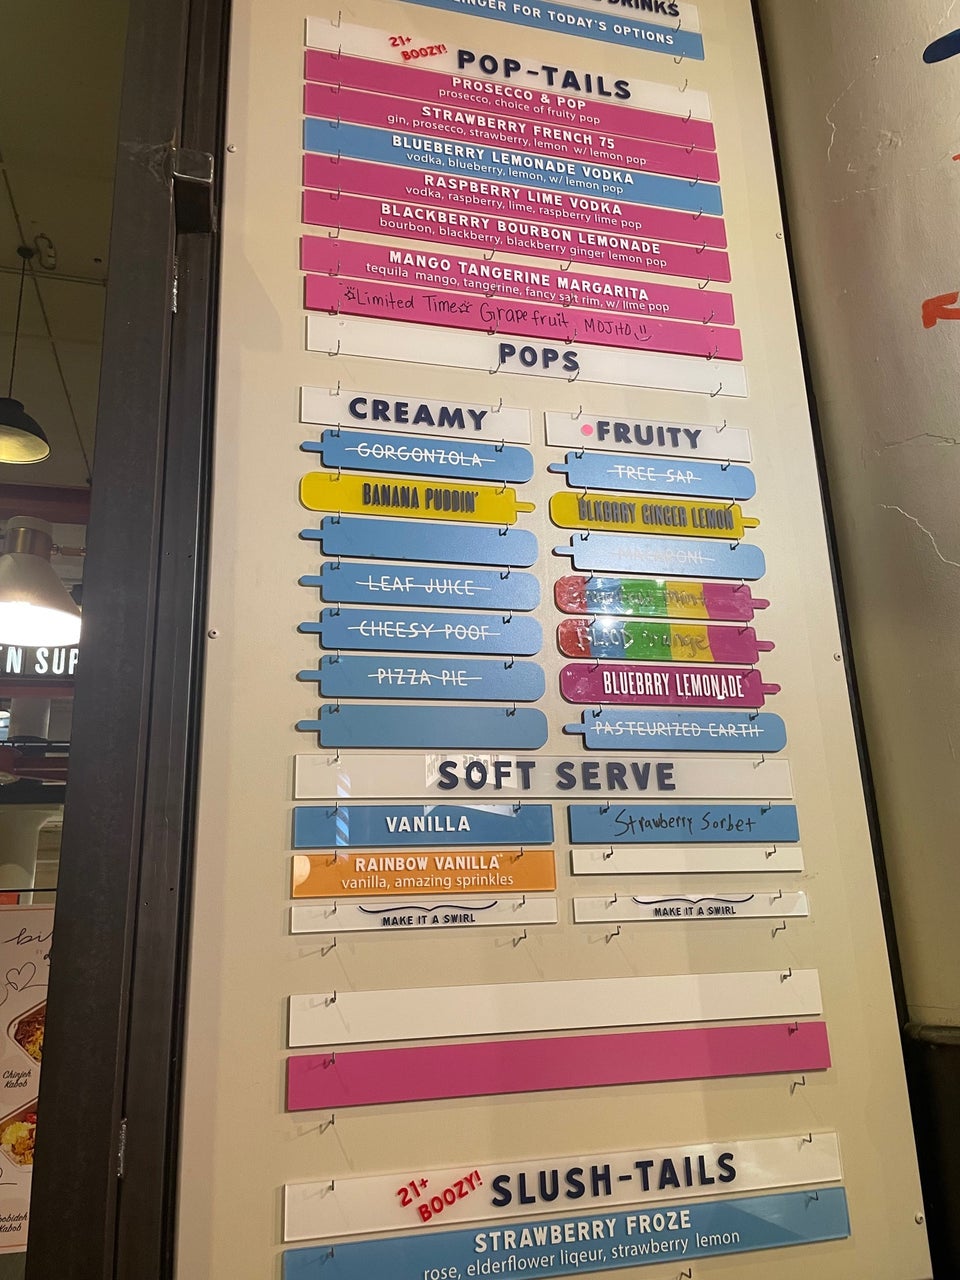 DRINKS
LINGER FOR TODAY'S OPTIONS
21+
BOOZY!
POP-TAILS
PROSECCO & POP
prosecco, choice of fruity pop
STRAWBERRY FRENCH 75
gin, prosecco, strawberry, lemon w/ lemon pop
BLUEBERRY LEMONADE VODKA
vodka, blueberry, lemon, w/ lemon pop
RASPBERRY LIME VODKA
vodka, raspberry, lime, raspberry lime pop
BLACKBERRY BOURBON LEMONADE
bourbon, blackberry, blackberry ginger lemon pop
MANGO TANGERINE MARGARITA
tequila mango, tangerine, fancy salt rim, w/ lime pop
Limited Time Grapefruit MOJITO
POPS
CREAMY
GORGONZOLA
BANANA PUDDIN'
LEAF JUICE
CHEESY POOF
PIZZA PIE
FRUITY
TREE SAP
BLKBRRY GINGER LEMON
MACARONI
Blood Orange
BLUEBRRY LEMONADE
PASTEURIZED EARTH
SOFT SERVE
VANILLA
RAINBOW VANILLA
vanilla, amazing sprinkles
MAKE IT A SWIRL
Strawberry Sorbet
MAKE IT A SWIRL
21+
BOOZY!
SLUSH-TAILS
STRAWBERRY FROZE
rose, elderflower liqeur, strawberry lemon
EN SUP
Chinjeh
Kabob
Kabob